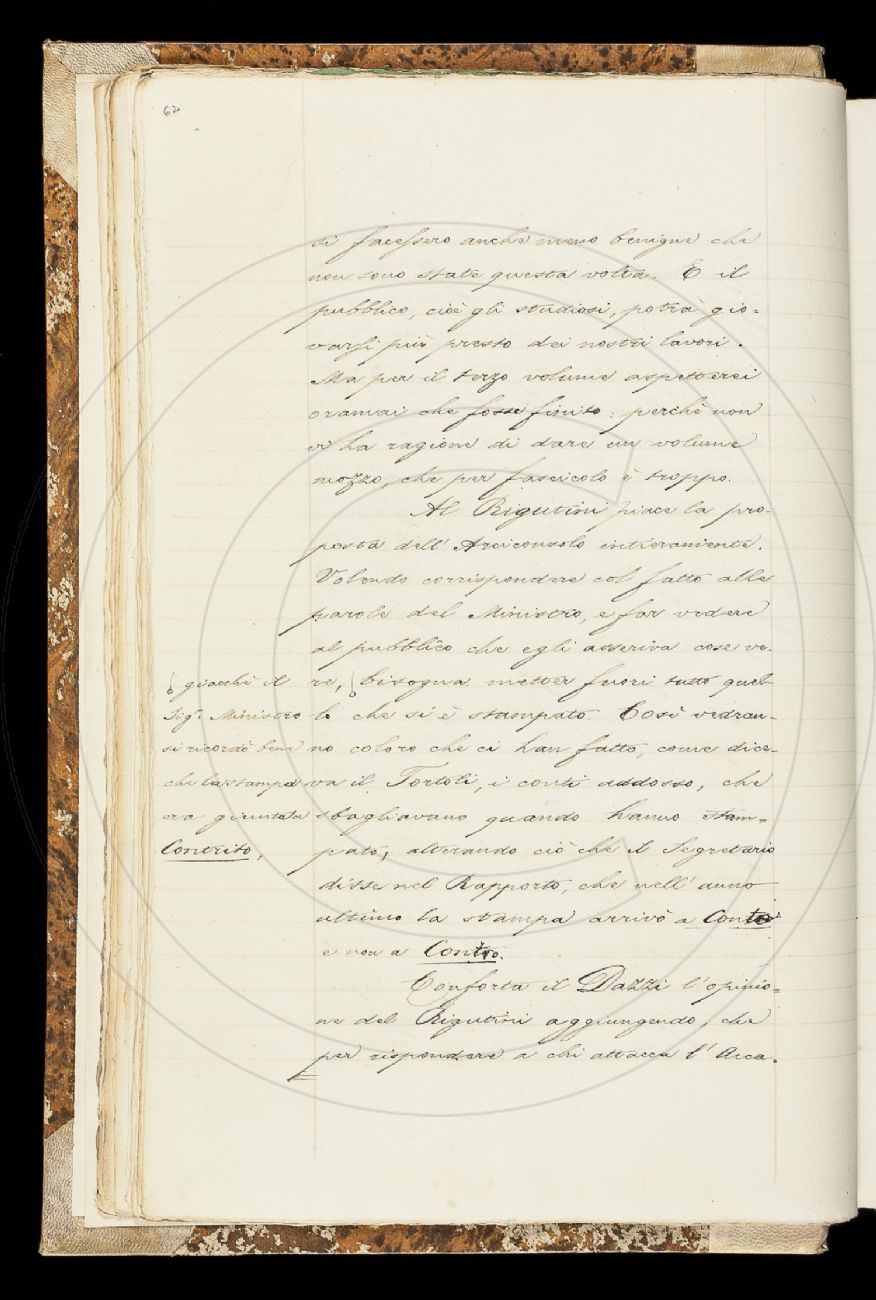 62
si facessero anche meno benigne che
non sono state questa volta. E il
pubblico, cioè gli studiosi, potrà gio-
varsi più presto dei nostri lavori.
Ma per il terzo volume aspetterei
oramai che fosse finito: perchè non
v'ha ragione di dare un volume
mozzo, che per fascicolo è troppo.
Al Rigutini piace la pro-
posta dell'Arciconsolo intieramente.
Volendo corrispondere col fatto alle
parole del Ministro, e far vedere
al pubblico che egli asseriva cose ve-
re, bisogna metter fuori tutto quel-
lo che si è stampato. Così vedran-
no coloro che ci han fatto, come dice-
va il Tortoli, i conti addosso, che
sbagliavano quando hanno stam-
pato, alterando ciò che il Segretario
disse nel Rapporto, che nell'anno
ultimo la stampa arrivò a
e non a Contro.
Conforta il Dazzi l'opinio-
ne del Rigutini aggiungendo, che
per rispondere a chi attacca l'Acca-
giacchè il
Sigr. Ministro
si ricordò bene
che la stampa
era giunta a
Contrito,